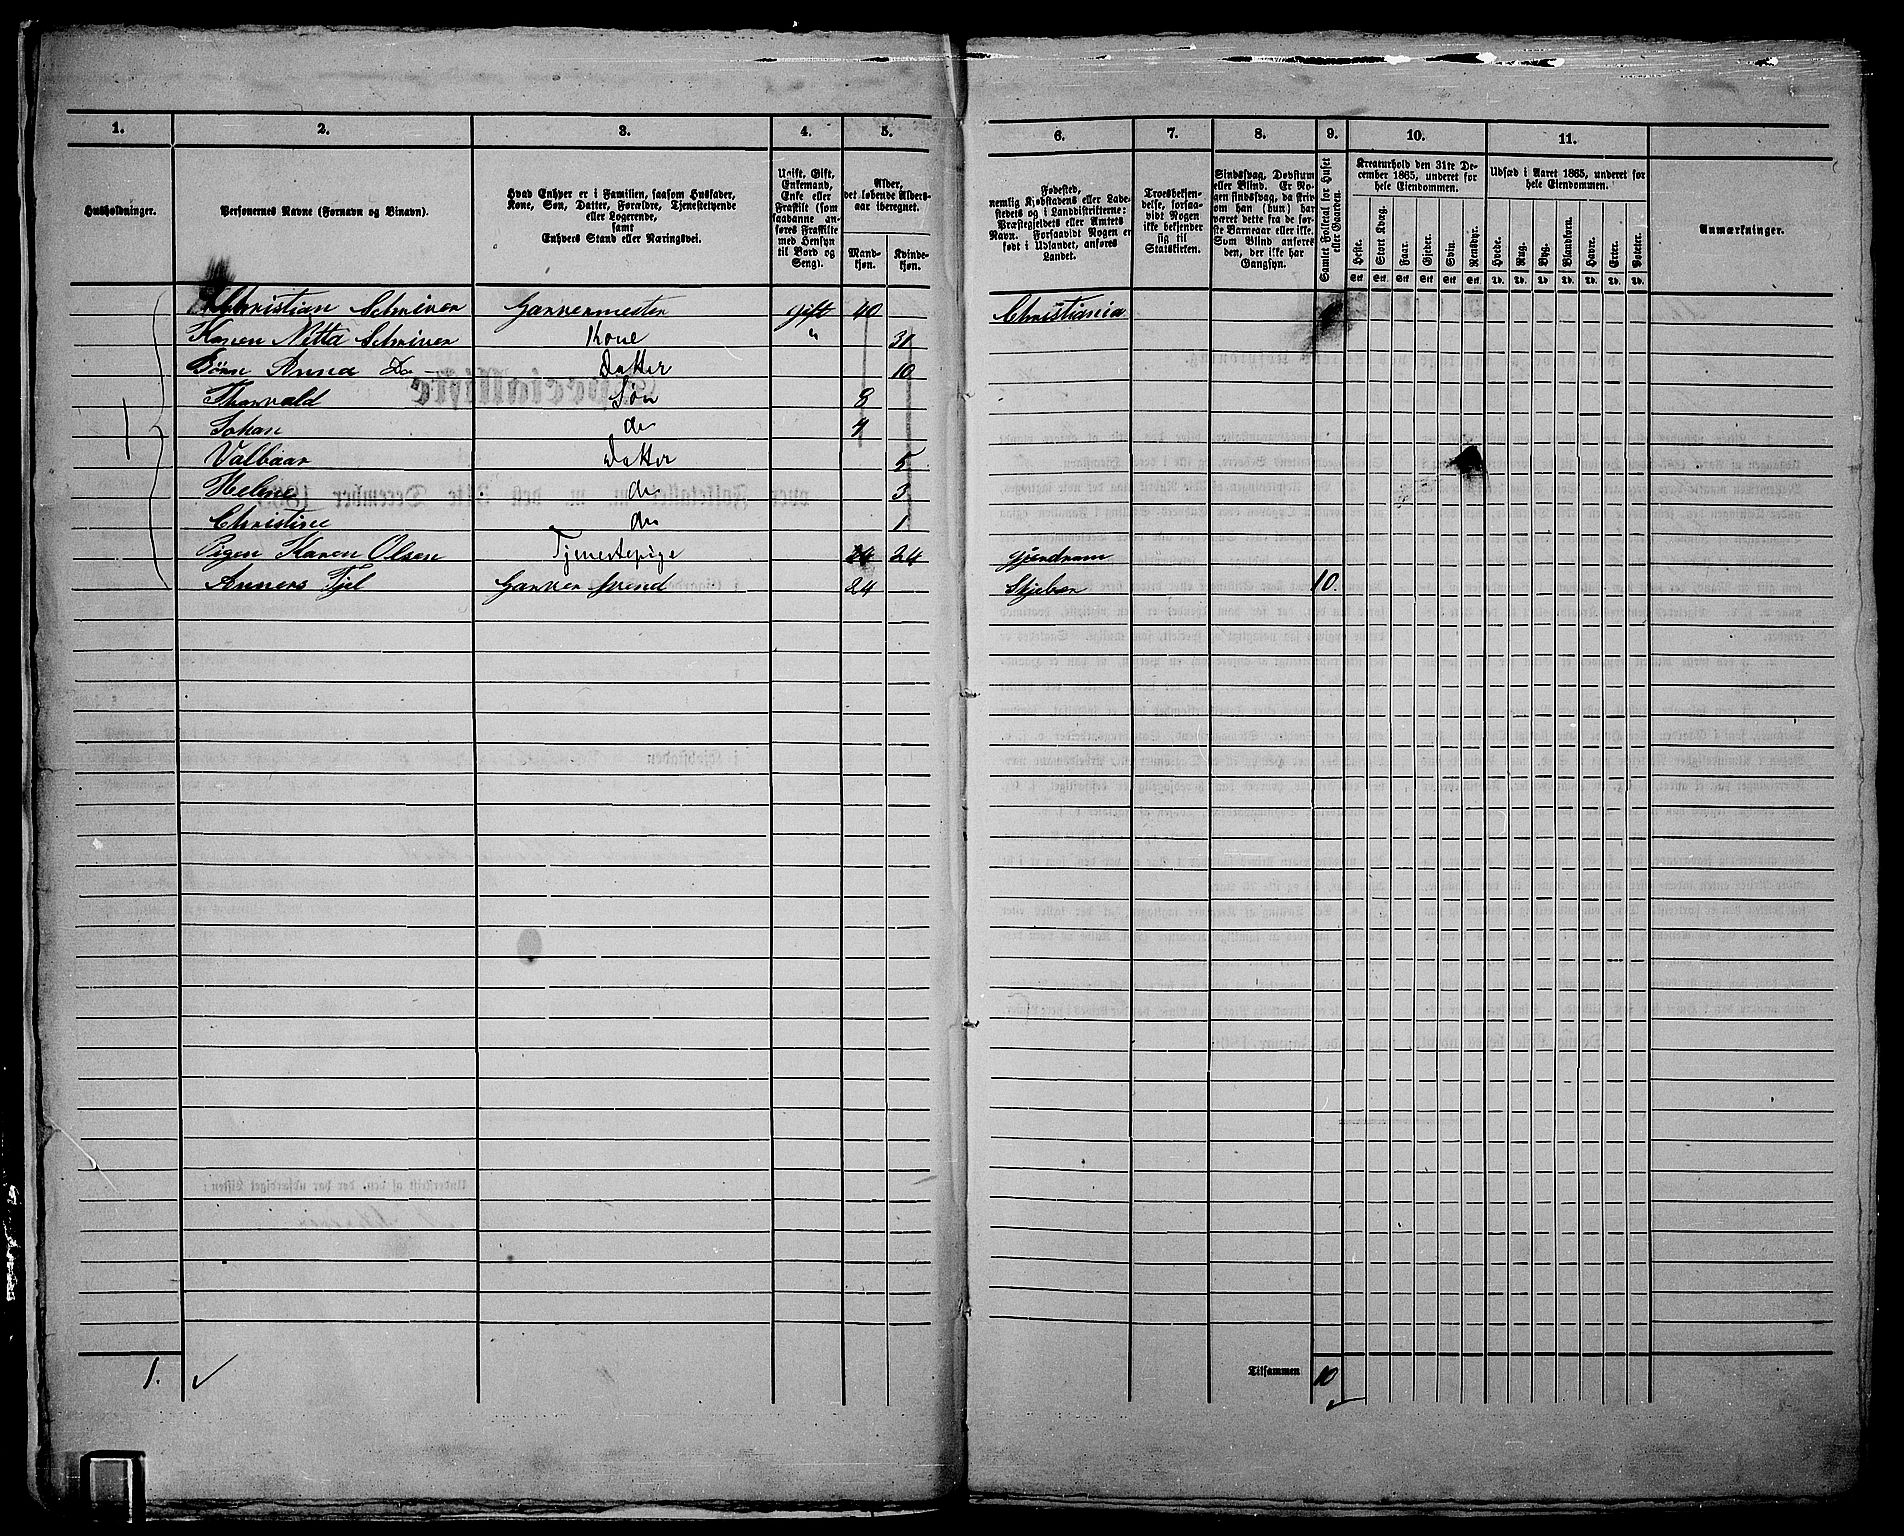 1.
2.
3.
4.
5.
6.
7.
8.
9.
10.
11.
Husholdninger.
Personernes Navne (Fornavn og Binavn).
Hvad Enhver er i Familien, saasom Husfader,
Kone, Søn, Datter, Forældre, Tjenestetyende
eller Logerende,
samt
Enhvers Stand eller Næringsvei.
Ugift, Gift,
Enkemand,
Enke eller
Fraskilt (som
saadanne an-
føres Fraskilte
med Hensyn
til Bord og
Seng).
Alder,
det løbende Alders-
aar iberegnet.
Mand-
kjøn.
Kvinde-
kjøn.
Fødested,
nemlig Kjøbstadens eller Lade-
stedets og i Landdistrikterne:
Præstegjeldets eller Amtets
Navn. Forsaavidt Nogen er
født i Udlandet, anføres
Landet.
Troesbekjen-
delse, forsaa-
vidt Nogen
ikke bekjender
sig til
Statskirken.
Sindssvag, Døvstum
eller Blind. Er No-
gen sindssvag, da skriv
om han (hun) har
været dette fra de før-
ste Barneaar eller ikke.
Som Blind anføres
den, der ikke har
Gangsyn.
Samlet Folketal for Huset
eller Gaarden.
Kreaturhold den 31te De-
cember 1865, underet for
hele Eiendommen.
Heste.
Stort Kvæg.
Faar.
Gjeder.
Svin.
Rensdyr.
Stk Stk Stk Stk Stk Stk
Udsæd i Aaret 1865, underet for
hele Eiendommen.
Hvede.
Rug.
Byg.
Blandkorn.
Havre.
Erter.
Poteter.
Td. Td. Td. Td. Td. Td. Td.
Anmærkninger.
Christian Schriver Garvermester Gift 40 Christiania
Karen Netta Schriver Kone " 31
Børn Anna Do - Datter 10
Thorvald Søn 8
Johan do 7
Valbaar Datter 5
Helene do 3
Christine do 1
Pigen Karen Olsen Tjenestepige 24 24 Gjerdrum
Anners Fjel Garver Svend 24 Skjeber 10.
1.
Tilsammen 10